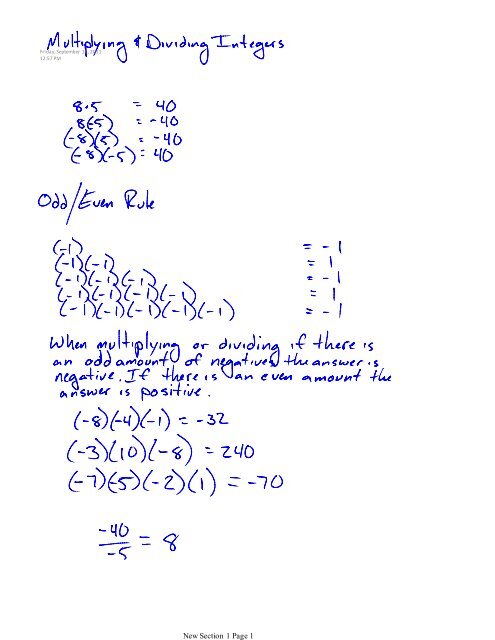 Multiplying & Dividing Integers
Friday, September
12:57 PM
8·5 = 40
8(-5) = -40
(-8)(5) = -40
(-8)(-5) = 40
Odd/Even Rule
(-1) = -1
(-1)(-1) = 1
(-1)(-1)(-1) = -1
(-1)(-1)(-1)(-1) = 1
(-1)(-1)(-1)(-1)(-1) = -1
When multiplying or dividing if there is
an odd amount of negatives the answer is
negative. If there is an even amount the
answer is positive.
(-8)(-4)(-1) = -32
(-3)(10)(-8) = 240
(-7)(-5)(-2)(1) = -70
-40/-5 = 8
New Section 1 Page 1